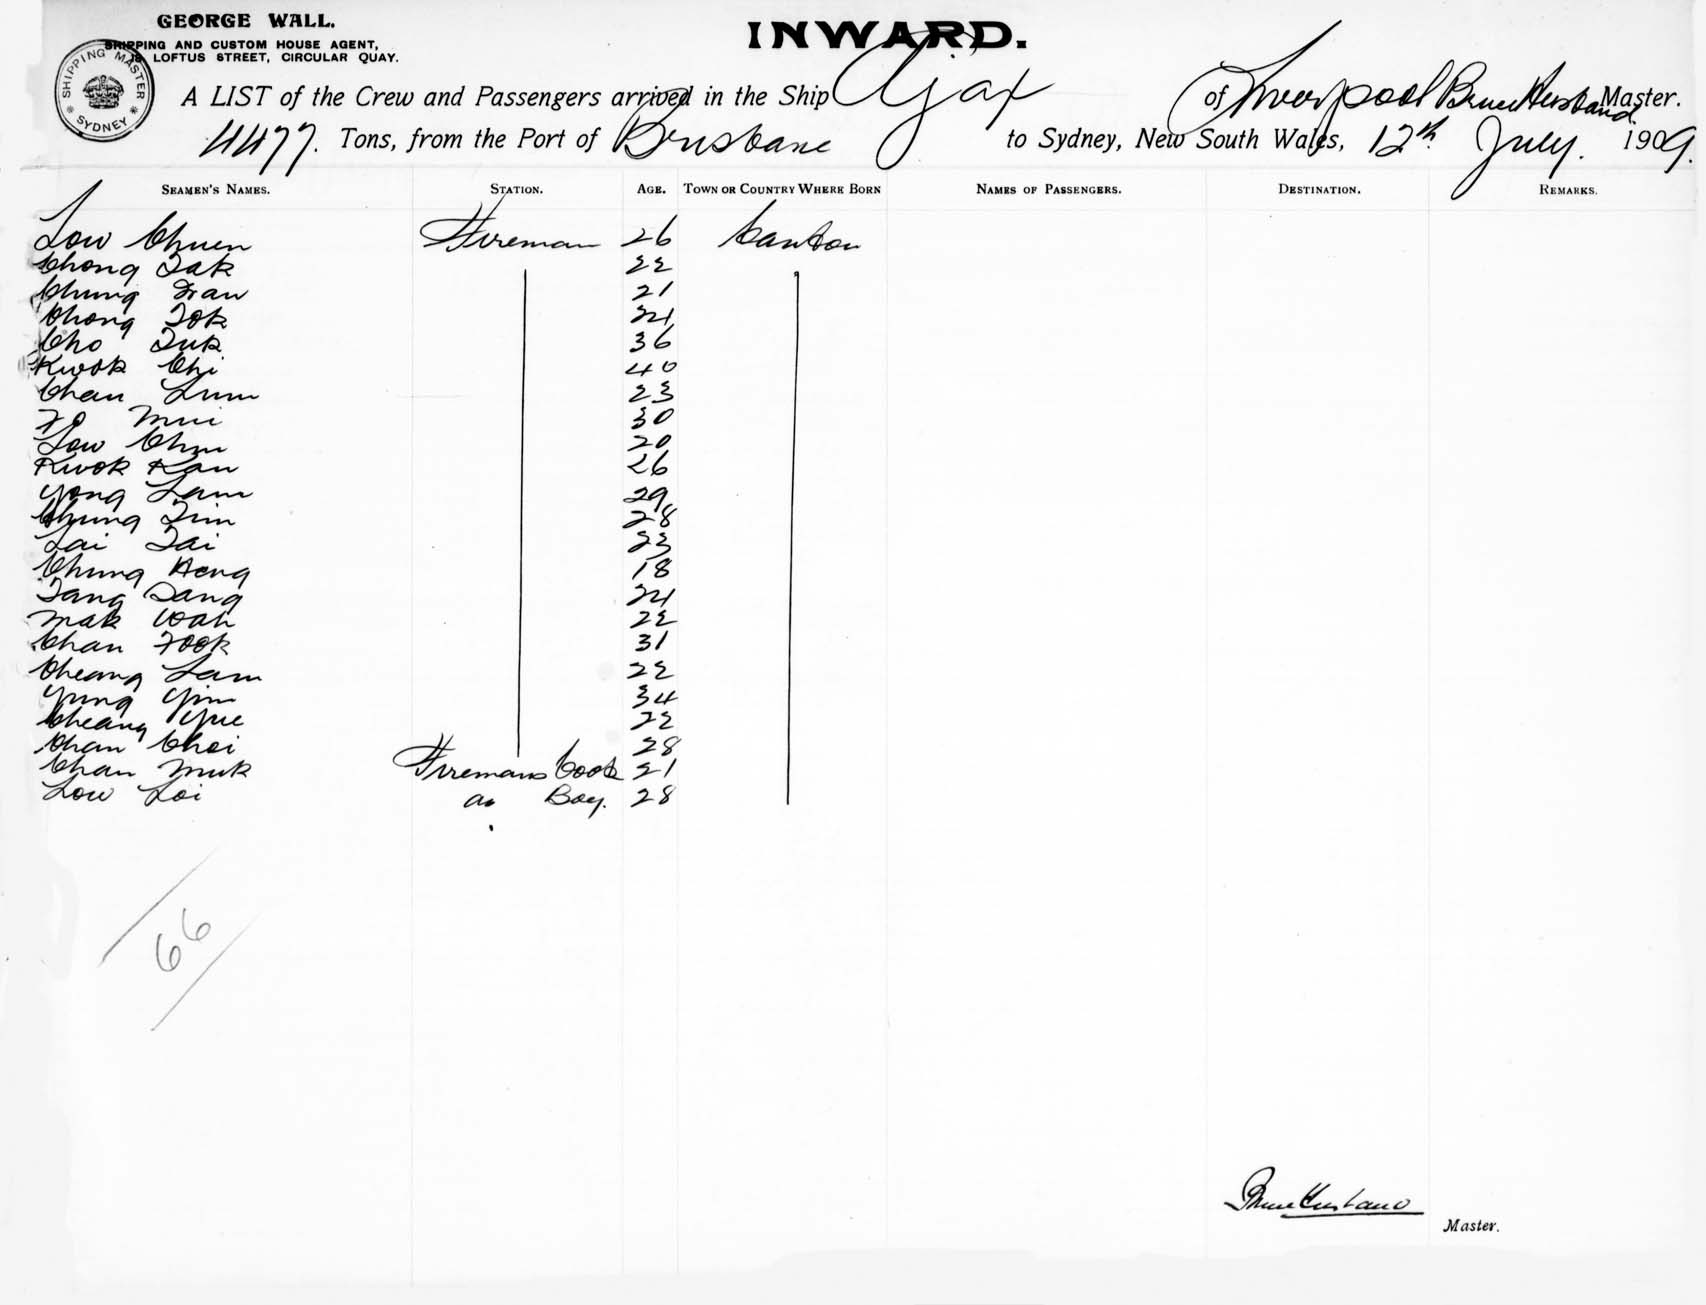 GEORGE WALL.
SHIPPING AND CUSTOM HOUSE AGENT,
LOFTUS STREET, CIRCULAR QUAY.
SHIPPING MASTER SYDNEY
INWARD.
A LIST of the Crew and Passengers arrived in the Ship Ajax of Liverpool Bruce Husband Master.
4477. Tons, from the Port of Brisbane to Sydney, New South Wales, 12th July. 1909.
SEAMEN'S NAMES. STATION. AGE. TOWN OR COUNTRY WHERE BORN NAMES OF PASSENGERS. DESTINATION. REMARKS.
Low Chuen Fireman 26 Canton
Chong Tak 22
Chung Fran 21
Chong Tok 24
Cho Tuk 36
Kwok Chi 40
Chan Lum 23
Fo Mui 30
Low Chun 20
Kwok Kau 26
Yong Lam 29
Chung Tim 28
Lai Tai 23
Chung Heng 18
Tang Sang 24
Mak Wah 22
Chan Fook 31
Cheang Lam 22
Yung Yim 34
Cheang Yue 22
Chan Choi 28
Chan Muk Firemans Cook 21
Low Loi Boy. 28
66
Bruce Husband
Master.